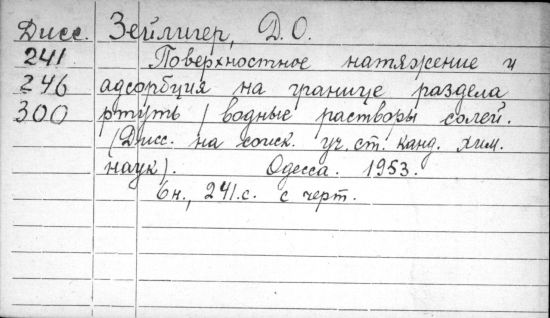 Дисс. Зейлигер, Д.О.
241 Поверхностное натяжение и
246 адсорбция на границе раздела
300 ртуть / водные растворы солей.
(Дисс. на соиск. уч. ст. канд. хим.
наук). Одесса. 1953.
6н., 241.с. с черт.